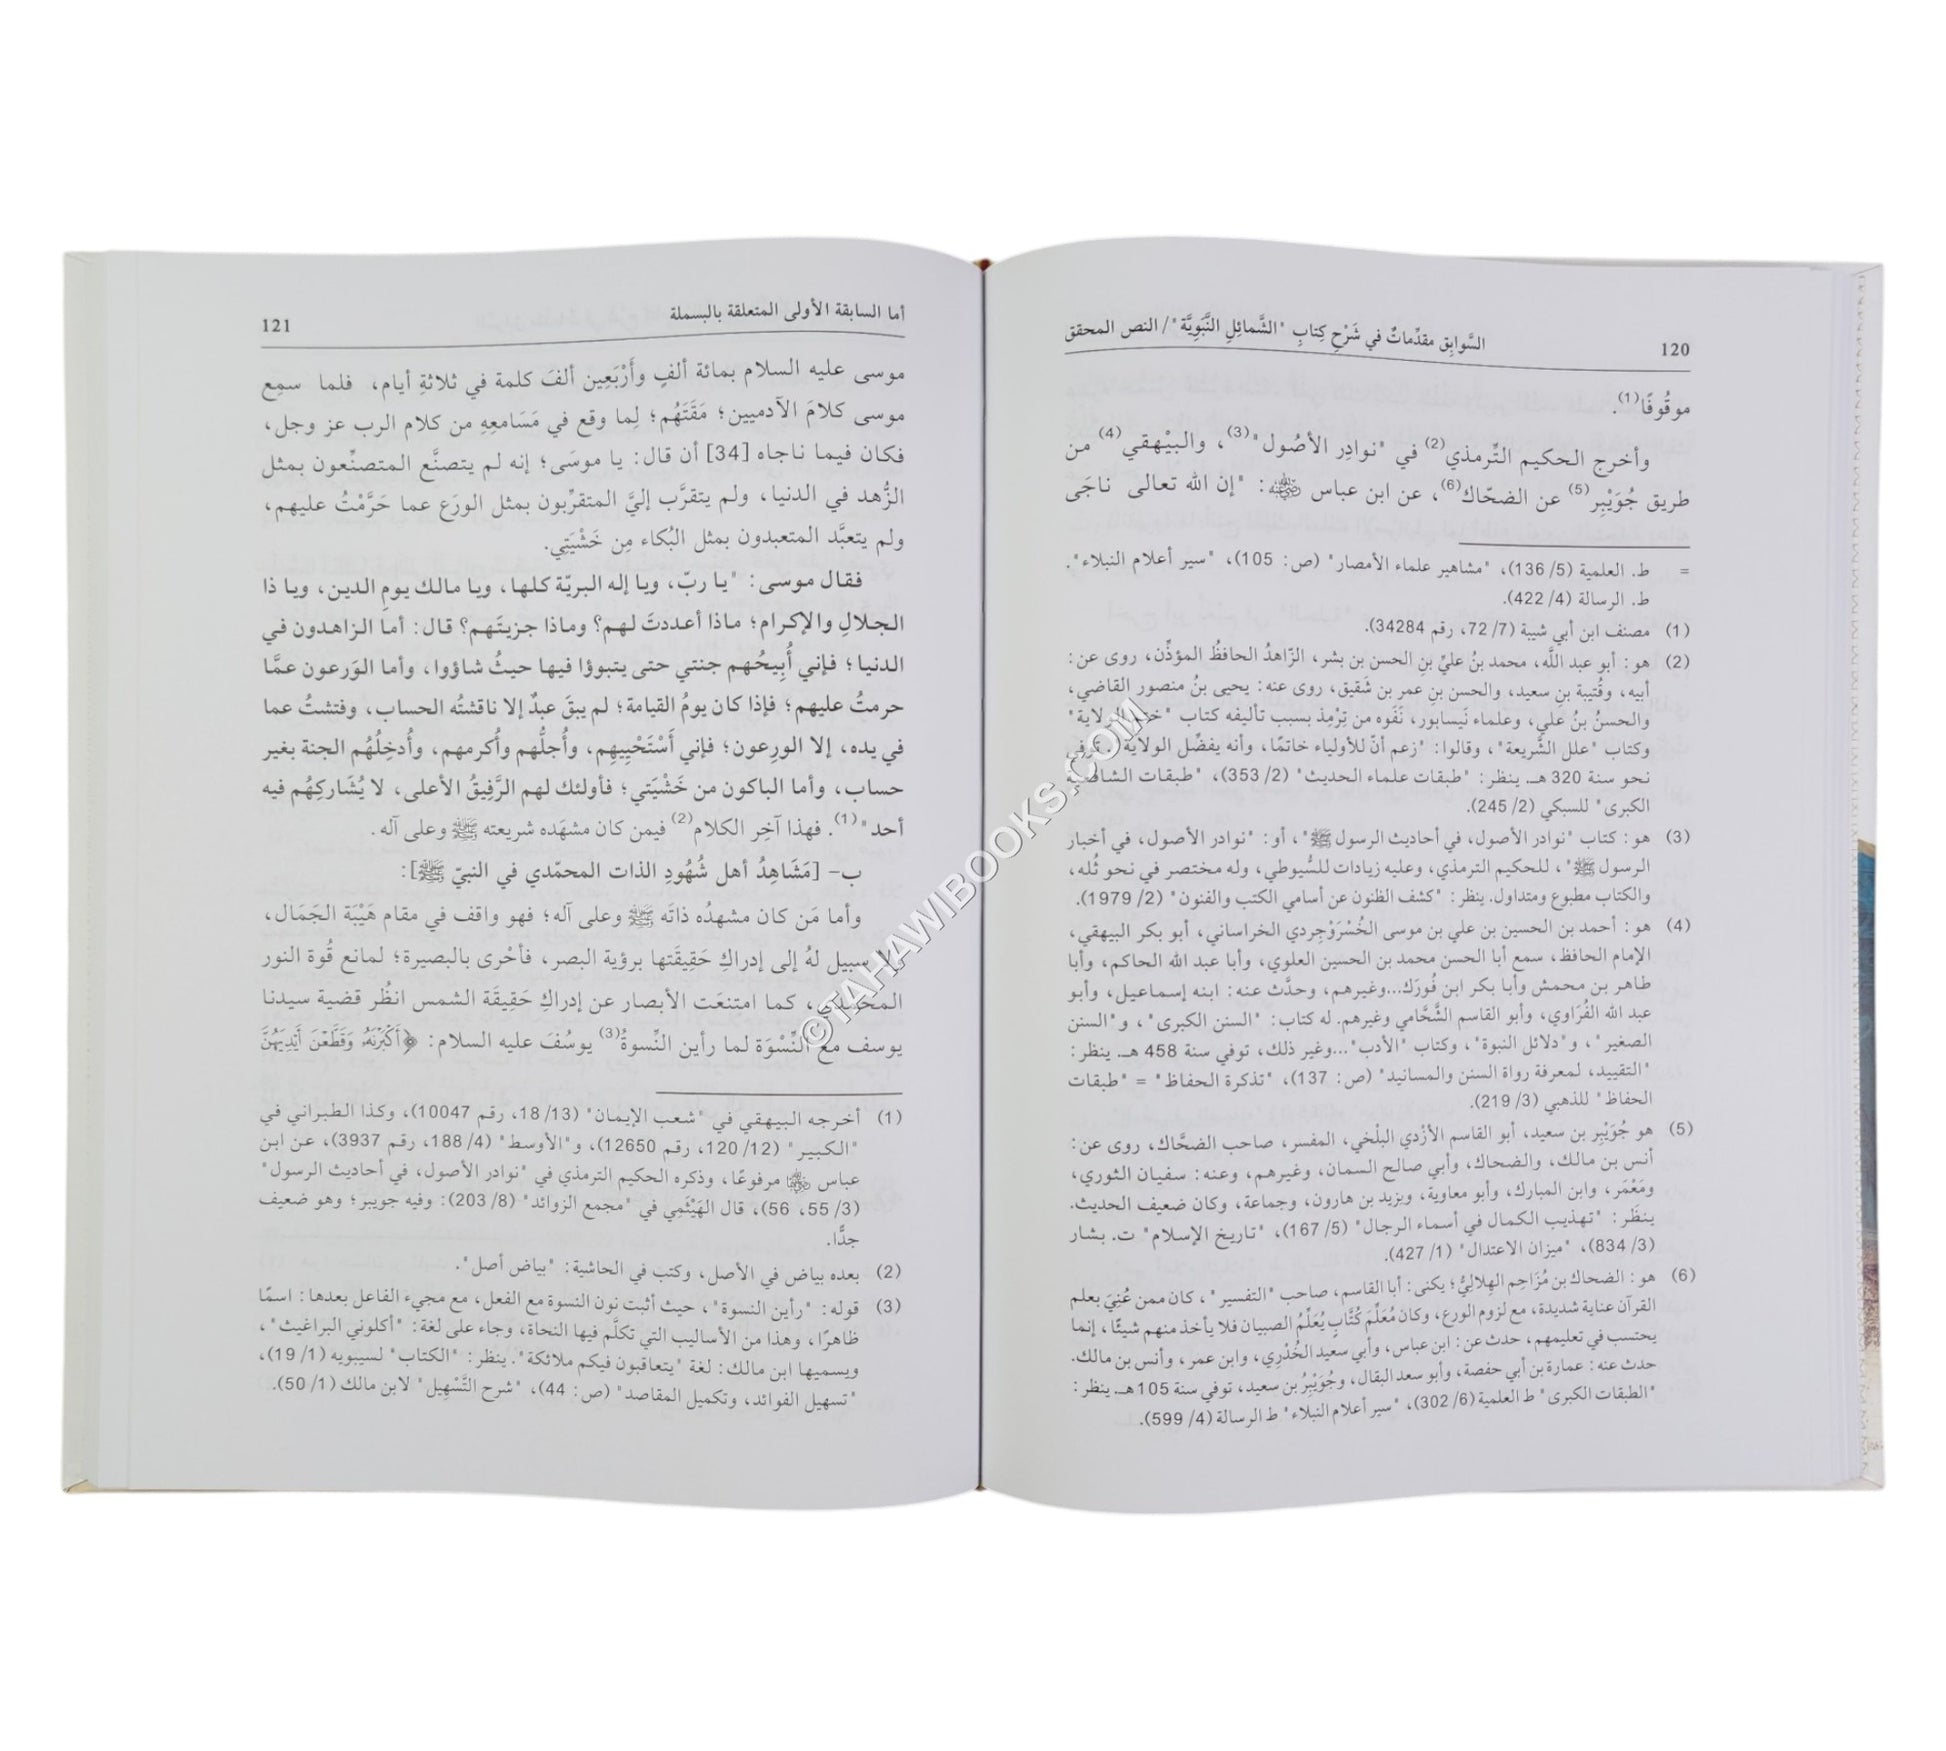 120
السَّوابِق مقدِّماتٌ في شَرْحِ كِتابِ "الشَّمائِلِ النَّبَوِيَّة"/ النص المحقق
موقُوفًا(1).
وأخرج الحكيم التِّرمذي(2) في "نوادِر الأصُول"(3)، والبيْهقي(4) من
طريق جُوَيْبِر(5) عن الضحّاك(6)، عن ابن عباس ﵁: "إن الله تعالى ناجَى
= ط. العلمية (5/ 136)، "مشاهير علماء الأمصار" (ص: 105)، "سير أعلام النبلاء".
ط. الرسالة (4/ 422).
(1) مصنف ابن أبي شيبة (7/ 72، رقم 34284).
(2) هو: أبو عبد اللَّه، محمد بنُ عليِّ بنِ الحسن بن بشر، الزّاهدُ الحافظُ المؤذِّن، روى عن:
أبيه، وقُتيبة بن سعيد، والحسن بنِ عمر بن شَقيق، روى عنه: يحيى بنُ منصور القاضي،
والحسنُ بنُ علي، وعلماء نَيسابور، نَفَوه من تِرْمِذ بسبب تأليفه كتاب "ختم الولاية"
وكتاب "علل الشَّريعة"، وقالوا: "زعم أنّ للأولياء خاتمًا، وأنه يفضِّل الولاية، توفي
نحو سنة 320 هـ. ينظر: "طبقات علماء الحديث" (2/ 353)، "طبقات الشافعية
الكبرى" للسبكي (2/ 245).
(3) هو: كتاب "نوادر الأصول، في أحاديث الرسول ﷺ"، أو: "نوادر الأصول، في أخبار
الرسول ﷺ"، للحكيم الترمذي، وعليه زيادات للسُّيوطي، وله مختصر في نحو ثُلثه،
والكتاب مطبوع ومتداول. ينظر: "كشف الظنون عن أسامي الكتب والفنون" (2/ 1979).
(4) هو: أحمد بن الحسين بن علي بن موسى الخُسْرَوْجِردي الخراساني، أبو بكر البيهقي،
الإمام الحافظ، سمع أبا الحسن محمد بن الحسين العلوي، وأبا عبد الله الحاكم، وأبا
طاهر بن محمش وأبا بكر ابن فُورَك...وغيرهم، وحدَّث عنه: ابنه إسماعيل، وأبو
عبد الله الفُرَاوي، وأبو القاسم الشَّحَّامي وغيرهم. له كتاب: "السنن الكبرى"، و"السنن
الصغير"، و"دلائل النبوة"، وكتاب "الأدب"...وغير ذلك، توفي سنة 458 هـ. ينظر:
"التقييد، لمعرفة رواة السنن والمسانيد" (ص: 137)، "تذكرة الحفاظ" = "طبقات
الحفاظ" للذهبي (3/ 219).
(5) هو جُوَيْبِر بن سعيد، أبو القاسم الأزْدي البلْخي، المفسر، صاحب الضحَّاك، روى عن:
أنس بن مالك، والضحاك، وأبي صالح السمان، وغيرهم، وعنه: سفيان الثوري،
ومَعْمَر، وابن المبارك، وأبو معاوية، ويزيد بن هارون، وجماعة، وكان ضعيف الحديث.
ينظَر: "تهذيب الكمال في أسماء الرجال" (5/ 167)، "تاريخ الإسلام" ت. بشار
(3/ 834)، "ميزان الاعتدال" (1/ 427).
(6) هو: الضحاك بن مُزَاحِم الهِلاليُّ؛ يكنى: أبا القاسم، صاحب "التفسير"، كان ممن عُنِيَ بعلم
القرآن عناية شديدة، مع لزوم الورع، وكان مُعَلِّمَ كُتَّابٍ يُعَلِّمُ الصبيان فلا يأخذ منهم شيئًا، إنما
يحتسب في تعليمهم، حدث عن: ابن عباس، وأبي سعيد الخُدْرِي، وابن عمر، وأنس بن مالك.
حدث عنه: عمارة بن أبي حفصة، وأبو سعد البقال، وجُوَيْبِرُ بن سعيد، توفي سنة 105 هـ. ينظر:
"الطبقات الكبرى" ط العلمية (6/ 302)، "سير أعلام النبلاء" ط الرسالة (4/ 599).
أما السابقة الأولى المتعلقة بالبسملة
121
موسى عليه السلام بمائة ألفٍ وأَرْبَعِين ألفَ كلمة في ثلاثةِ أيام، فلما سمِع
موسى كلامَ الآدميين؛ مَقَتَهُم؛ لِما وقع في مَسَامعِهِ من كلام الرب عز وجل،
فكان فيما ناجاه [34] أن قال: يا موسَى؛ إنه لم يتصنَّع المتصنِّعون بمثل
الزُّهد في الدنيا، ولم يتقرَّب إليَّ المتقرِّبون بمثل الورَع عما حَرَّمْتُ عليهم،
ولم يتعبَّد المتعبدون بمثل البُكاء مِن خَشْيَتِي.
فقال موسى: "يا ربّ، ويا إله البريّة كلها، ويا مالك يومِ الدين، ويا ذا
الجلالِ والإكرام؛ ماذا أعددتَ لهم؟ وماذا جزيتَهم؟ قال: أما الزاهدون في
الدنيا؛ فإني أُبِيحُهم جنتي حتى يتبوؤا فيها حيثُ شاؤوا، وأما الوَرعون عمَّا
حرمتُ عليهم؛ فإذا كان يومُ القيامة؛ لم يبقَ عبدٌ إلا ناقشتُه الحساب، وفتشتُ عما
في يده، إلا الورِعون؛ فإني أَسْتَحْيِيهِم، وأُجلُّهم وأُكرمهم، وأُدخِلُهُم الجنة بغير
حساب، وأما الباكون من خَشْيَتي؛ فأولئك لهم الرَّفِيقُ الأعلى، لا يُشَاركِهُم فيه
أحد"(1). فهذا آخِر الكلام(2) فيمن كان مشهَده شريعته ﷺ وعلى آله.
ب- [مَشَاهِدُ أهل شُهُودِ الذات المحمّدي في النبيّ ﷺ]:
وأما مَن كان مشهدُه ذاتَه ﷺ وعلى آله؛ فهو واقف في مقام هَيْبَة الجَمَال،
لا سبيل لهُ إلى إدراكِ حَقِيقَتها برؤية البصر، فأحْرى بالبصيرة؛ لمانع قُوة النور
المحمّدي، كما امتنعَت الأبصار عن إدراكِ حَقِيقَة الشمس انظُر قضية سيدنا
يوسف مع النِّسْوَة لما رأين النِّسوةُ(3) يوسُفَ عليه السلام: ﴿أَكْبَرْنَهُۥ وَقَطَّعْنَ أَيْدِيَهُنَّ
(1) أخرجه البيهقي في "شعب الإيمان" (13/ 18، رقم 10047)، وكذا الطبراني في
"الكبير" (12/ 120، رقم 12650)، و"الأوسط" (4/ 188، رقم 3937)، عن ابن
عباس ﵄ مرفوعًا، وذكره الحكيم الترمذي في "نوادر الأصول، في أحاديث الرسول"
(3/ 55، 56)، قال الهَيْثَمِي في "مجمع الزوائد" (8/ 203): وفيه جويبر؛ وهو ضعيف
جدًّا.
(2) بعده بياض في الأصل، وكتب في الحاشية: "بياض أصل".
(3) قوله: "رأين النسوة"، حيث أثبت نون النسوة مع الفعل، مع مجيء الفاعل بعدها: اسمًا
ظاهرًا، وهذا من الأساليب التي تكلَّم فيها النحاة، وجاء على لغة: "أكلوني البراغيث"،
ويسميها ابن مالك: لغة "يتعاقبون فيكم ملائكة". ينظر: "الكتاب" لسيبويه (1/ 19)،
"تسهيل الفوائد، وتكميل المقاصد" (ص: 44)، "شرح التَّسْهِيل" لابن مالك (1/ 50).
©TAHAWIBOOKS.COM